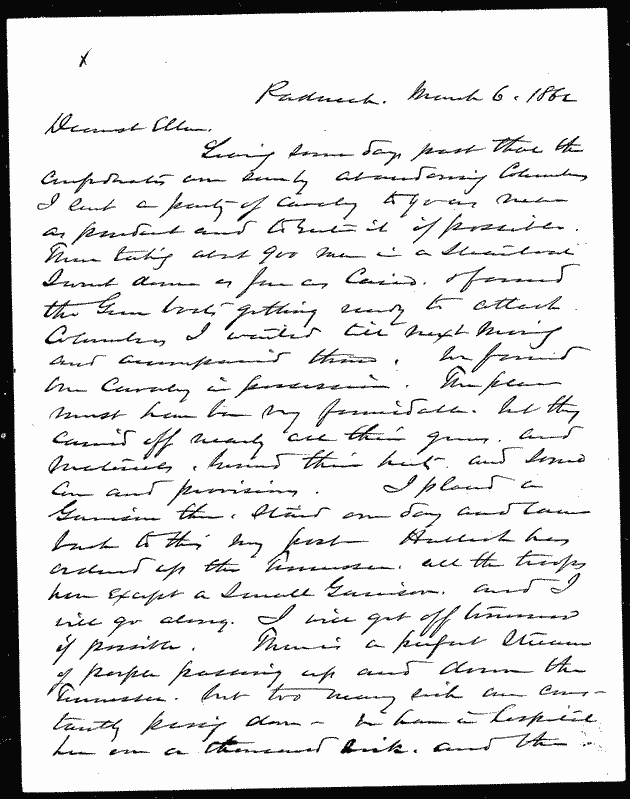 x
Paducah. March 6. 1862
Dearest Ellen,
Seeing some days past that the
Confederates were surely abandoning Columbus
I sent a party of cavalry to go as near
as prudent and to enter it if possible.
Then taking about 900 men in a Steamboat
I went down as far as Cairo. & found
the Gun boats getting ready to attack
Columbus I waited till next Morning
and accompanied them. We found
our Cavalry in possession. The place
must have been very formidable. but they
carried off nearly all their guns. and
materials. burned their huts and some
corn and provisions. I placed a
Garrison there. Staid one day and came
back to this my post Halleck has
ordered up the Tennessee. all the troops
here Except a Small Garrison. and I
will go along. I will get off tomorrow
if possible. There is a perfect Stream
of people passing up and down the
Tennessee. but too many sick are cons-
tantly passing down - we have in hospital
here over a thousand sick. and the